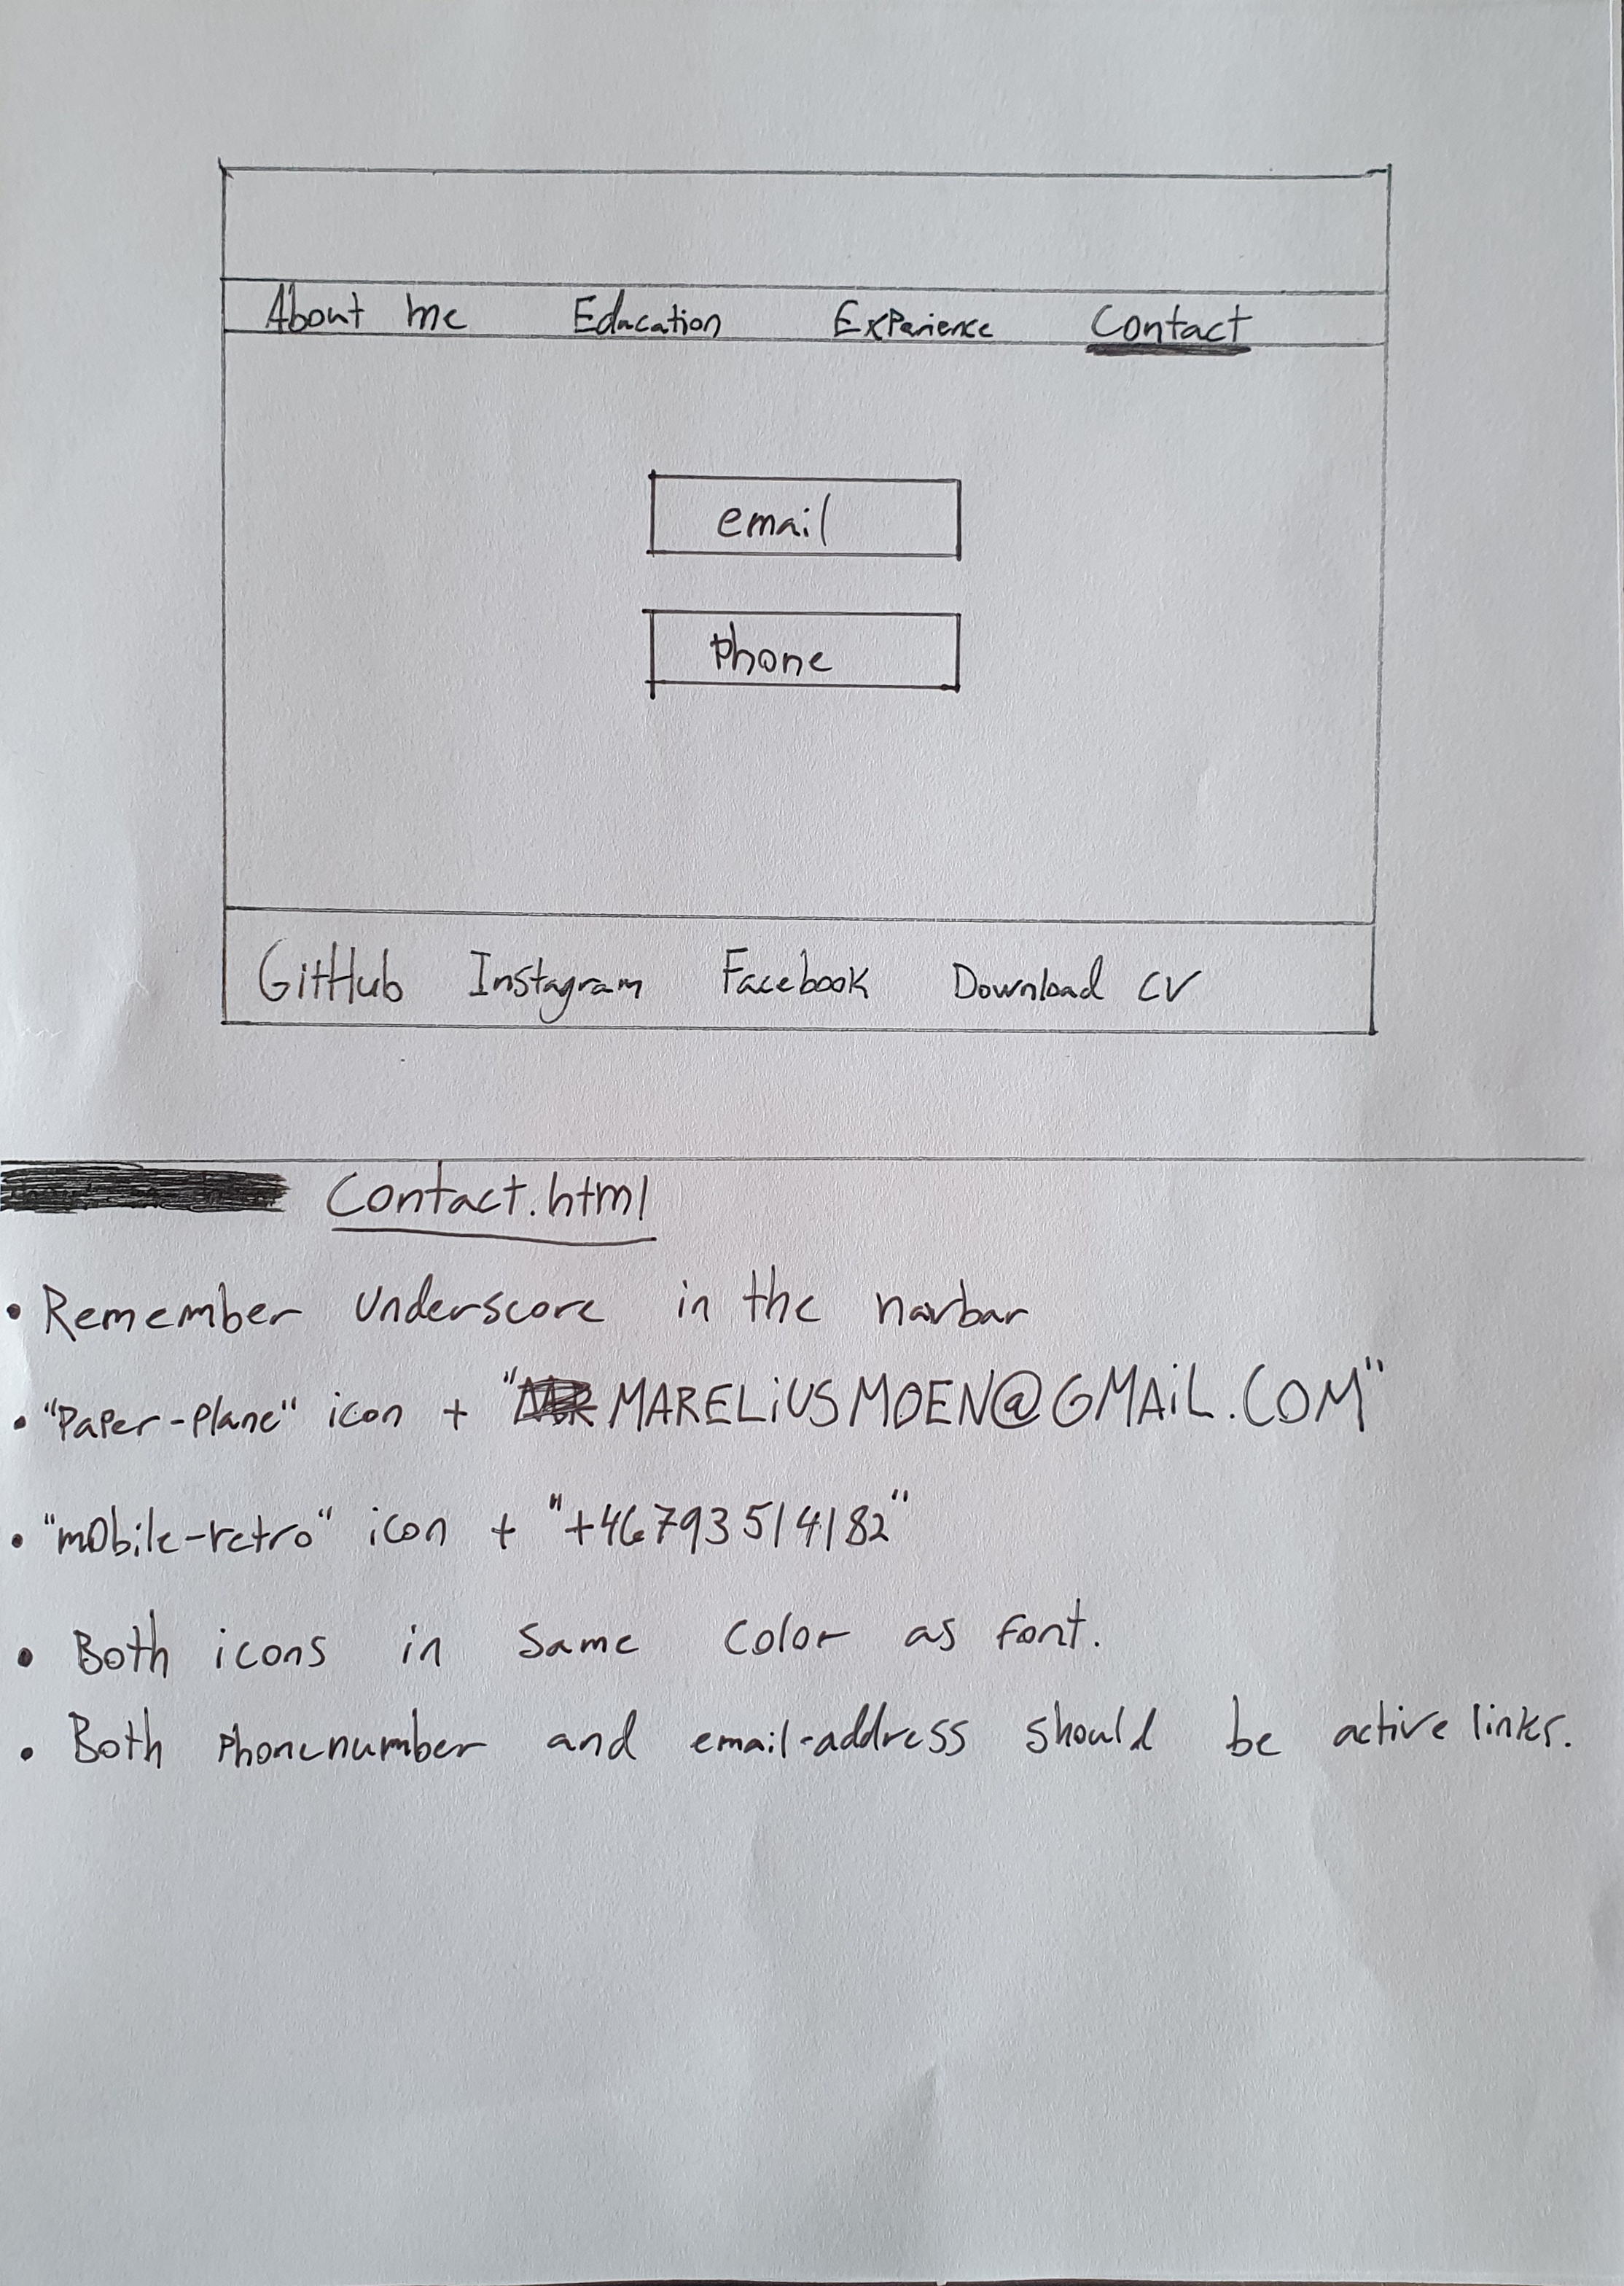 About me Education Experience Contact
email
Phone
GitHub Instagram Facebook Download CV
Contact.html
• Remember underscore in the navbar
• "Paper-plane" icon + "MARELIUSMOEN@GMAIL.COM"
• "mobile-retro" icon + "+46793514182"
• Both icons in same color as font.
• Both phonenumber and email-address should be active links.